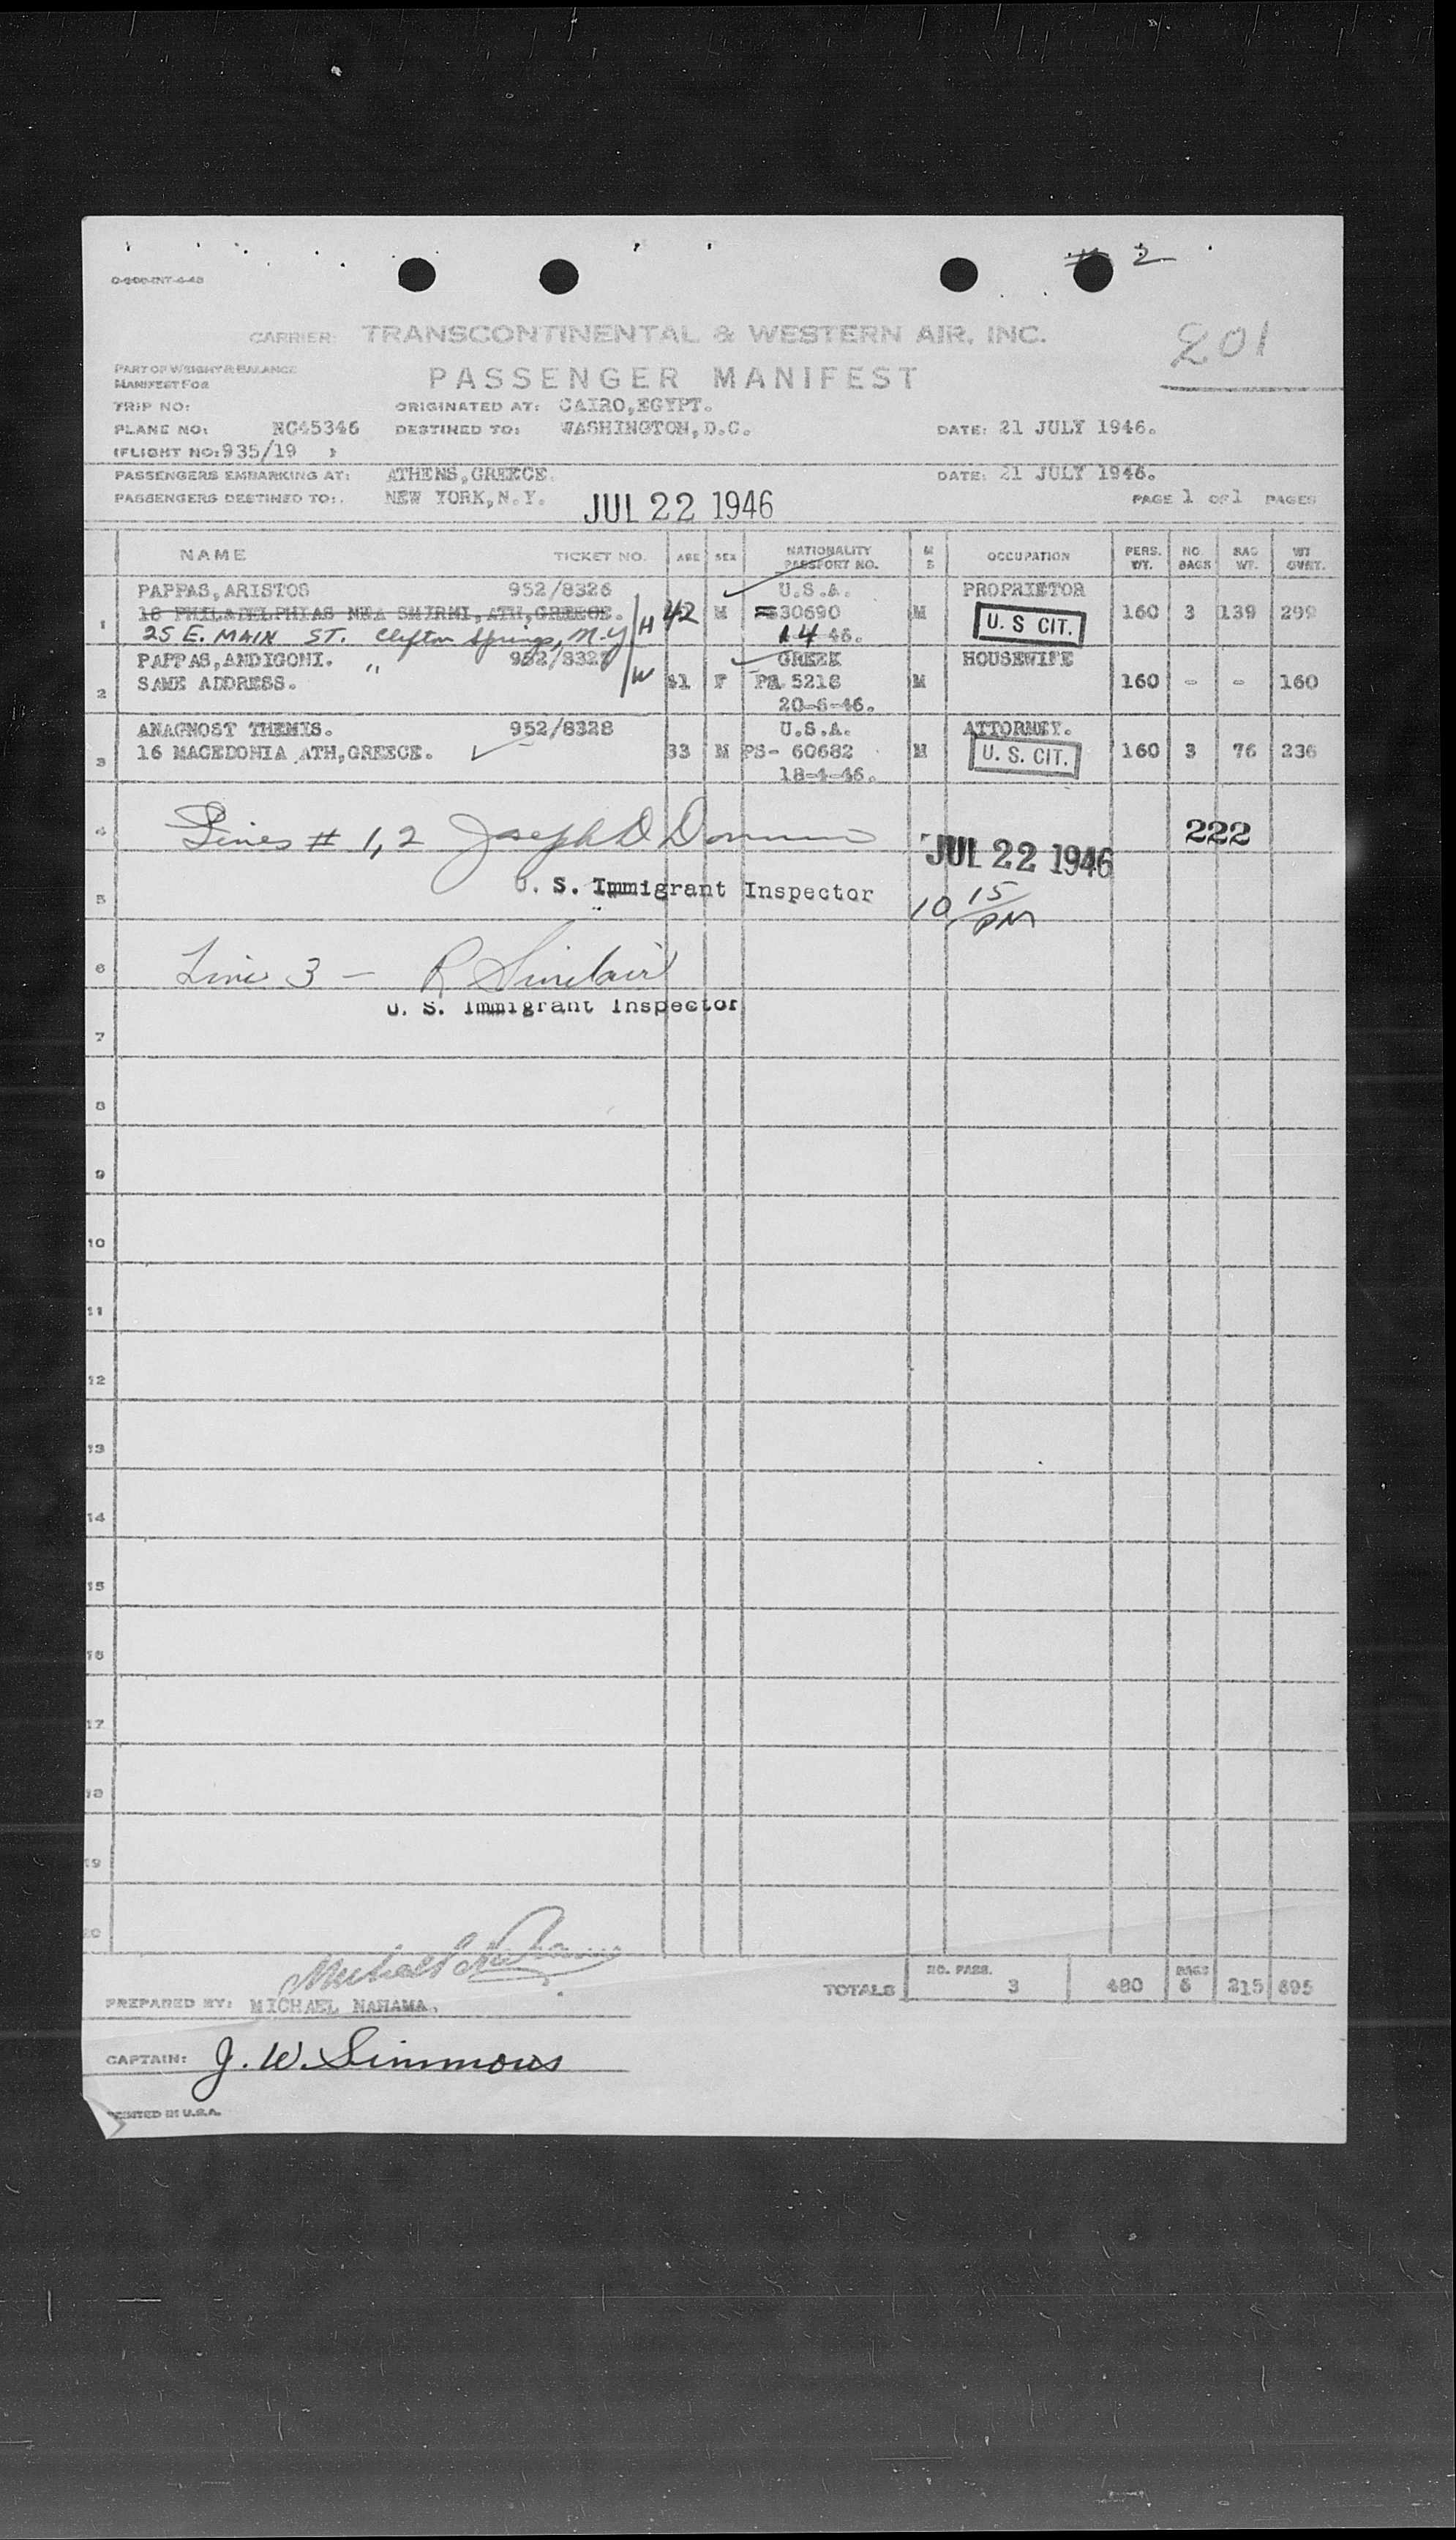 # 2
CARRIER: TRANSCONTINENTAL & WESTERN AIR, INC.
201
PART OF WEIGHT & BALANCE
MANIFEST FOR
PASSENGER MANIFEST
TRIP NO: ORIGINATED AT: CAIRO,EGYPT.
PLANE NO: NC45346 DESTINED TO: WASHINGTON,D.C. DATE: 21 JULY 1946.
(FLIGHT NO: 935/19 )
PASSENGERS EMBARKING AT: ATHENS,GREECE. DATE: 21 JULY 1946.
PASSENGERS DESTINED TO: NEW YORK,N.Y. JUL 22 1946 PAGE 1 OF 1 PAGES
NAME TICKET NO. AGE SEX NATIONALITY PASSPORT NO. M S OCCUPATION PERS. WT. NO. BAGS BAG WT. WT OVRT.
PAPPAS,ARISTOS 952/8326 U.S.A. PROPRIETOR
1 18 PHILADELPHIAS NEA SMIRNI,ATH,GREECE. H 42 M 30690 M U. S CIT. 160 3 139 299
25 E. MAIN ST. Clifton Springs, N.Y 46.
PAPPAS,ANDIGONI. " GREEK HOUSEWIFE
2 SAME ADDRESS. W 41 F PA 5218 M 160 - - 160
20-6-46.
ANAGNOST THEMIS. 952/8328 U.S.A. ATTORNEY.
3 16 MACEDONIA ATH,GREECE. 33 M PS- 60682 M U. S. CIT. 160 3 76 236
18-4-46.
4 Lines # 1,2 Joseph D JUL 22 1946 222
5 U. S. Immigrant Inspector 10 15/PM
6 Line 3 - R Sinclair
U. S. Immigrant Inspector
7
8
9
10
11
12
13
14
15
16
17
18
19
20
TOTALS NO. PASS. 3 480 BAGS 6 215 695
PREPARED BY: MICHAEL NAHAMA.
CAPTAIN: J. W. Simmons
PRINTED IN U.S.A.